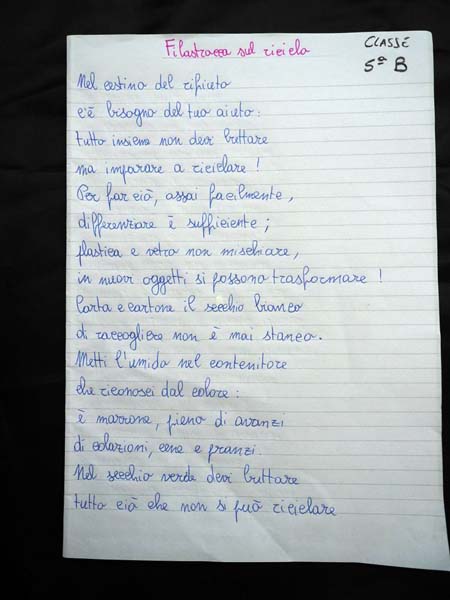 Filastrocca sul riciclo
CLASSE
5ª B
Nel cestino del rifiuto
c'è bisogno del tuo aiuto:
tutto insieme non devi buttare
ma imparare a riciclare!
Per far ciò, assai facilmente,
differenziare è sufficiente;
plastica e vetro non mischiare,
in nuovi oggetti si possono trasformare!
Carta e cartone il secchio bianco
di raccogliere non è mai stanco.
Metti l'umido nel contenitore
che riconosci dal colore:
è marrone, pieno di avanzi
di colazioni, cene e pranzi.
Nel secchio verde devi buttare
tutto ciò che non si può riciclare